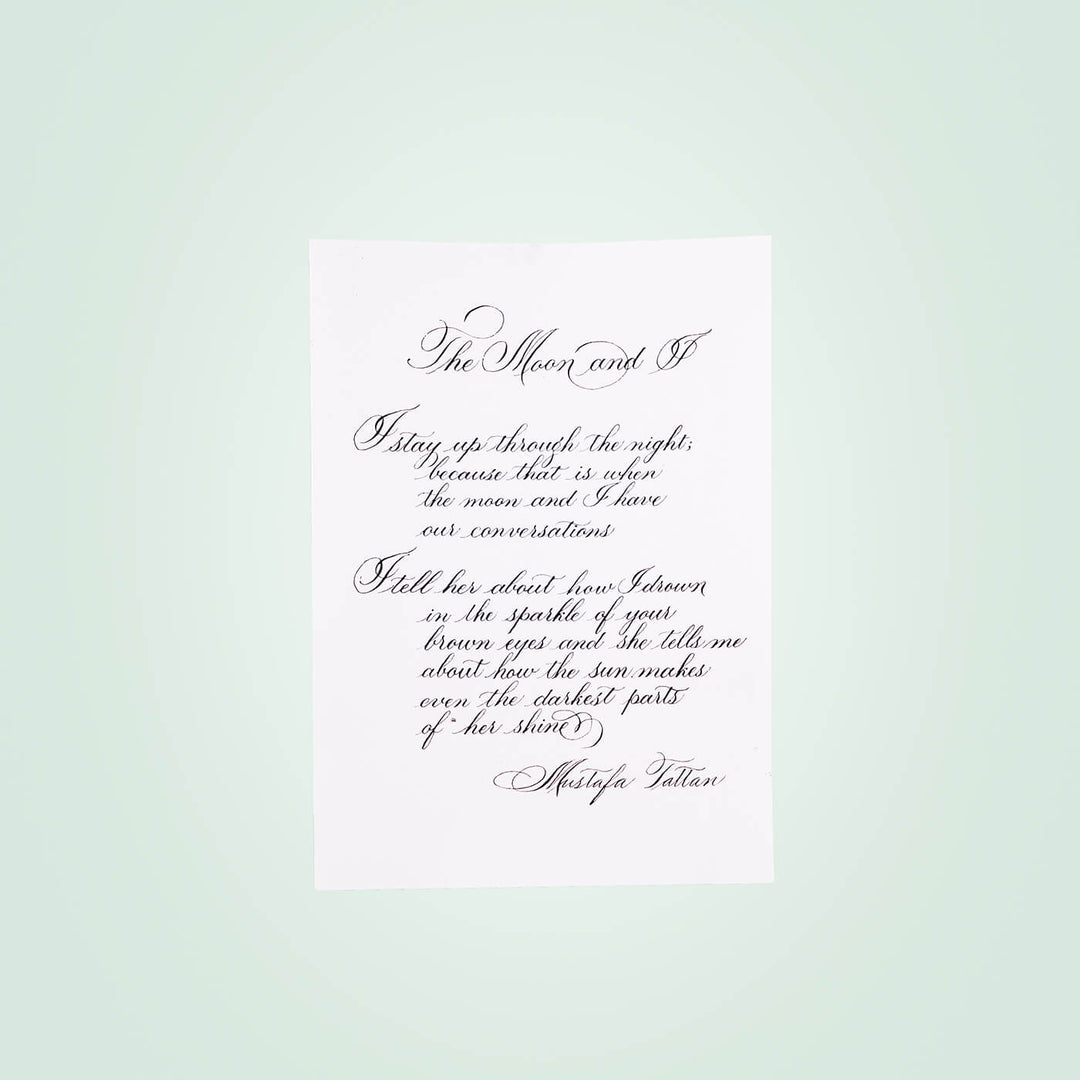 The Moon and I
I stay up through the night;
because that is when
the moon and I have
our conversations
I tell her about how I drown
in the sparkle of your
brown eyes and she tells me
about how the sun makes
even the darkest parts
of her shine
Mustafa Tattan